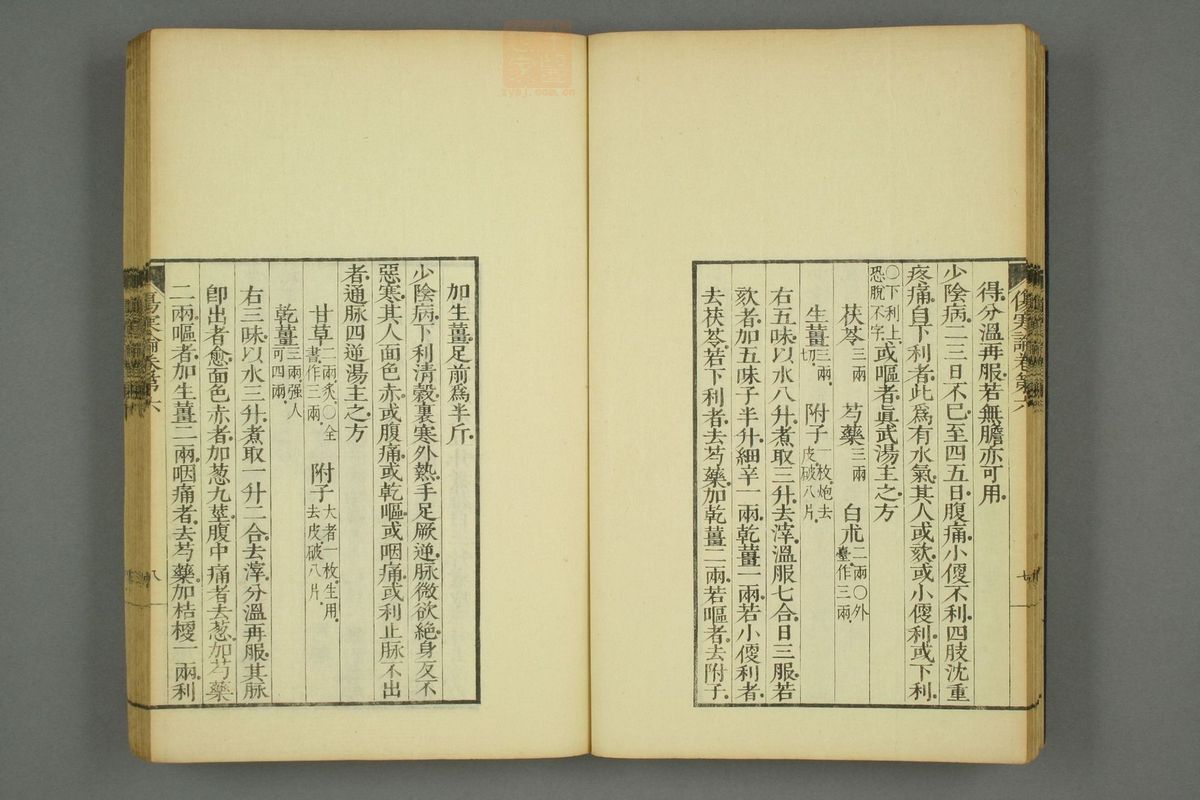 得分溫再服若無膽亦可用
少陰病二三日不已至四五日腹痛小便不利四肢沈重
疼痛自下利者此爲有水氣其人或欬或小便利或下利
〇下利上恐脫不字或嘔者眞武湯主之方
茯苓三兩 芍藥三兩 白朮二兩〇外臺作三兩
生薑三兩切 附子一枚炮去皮破八片
右五味以水八升煮取三升去滓溫服七合日三服若
欬者加五味子半升細辛一兩乾薑一兩若小便利者
去茯苓若下利者去芍藥加乾薑二兩若嘔者去附子
傷寒論卷第六
七
加生薑足前爲半斤
少陰病下利清穀裏寒外熱手足厥逆脉微欲絶身反不
惡寒其人面色赤或腹痛或乾嘔或咽痛或利止脉不出
者通脉四逆湯主之方
甘草二兩炙〇全書作三兩 附子大者一枚生用去皮破八片
乾薑三兩强人可四兩
右三味以水三升煮取一升二合去滓分溫再服其脉
卽出者愈面色赤者加葱九莖腹中痛者去葱加芍藥
二兩嘔者加生薑二兩咽痛者去芍藥加桔梗一兩利
傷寒論卷第六
八
zysj.com.cn